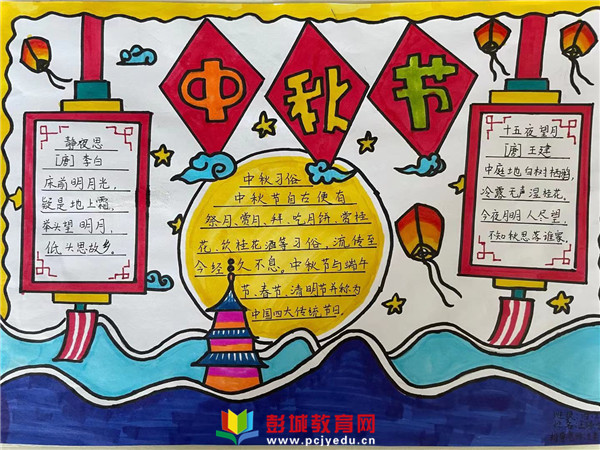 中秋节
静夜思
[唐] 李白
床前明月光，
疑是地上霜。
举头望明月，
低头思故乡。
中秋习俗
中秋节自古便有
祭月、赏月、拜、吃月饼、赏桂
花、饮桂花酒等习俗，流传至
今经久不息。中秋节与端午
节、春节、清明节并称为
中国四大传统节日。
十五夜望月
[唐] 王建
中庭地白树栖鸦
冷露无声湿桂花。
今夜月明人尽望，
不知秋思落谁家。
彭城教育网
www.pcjyedu.cn